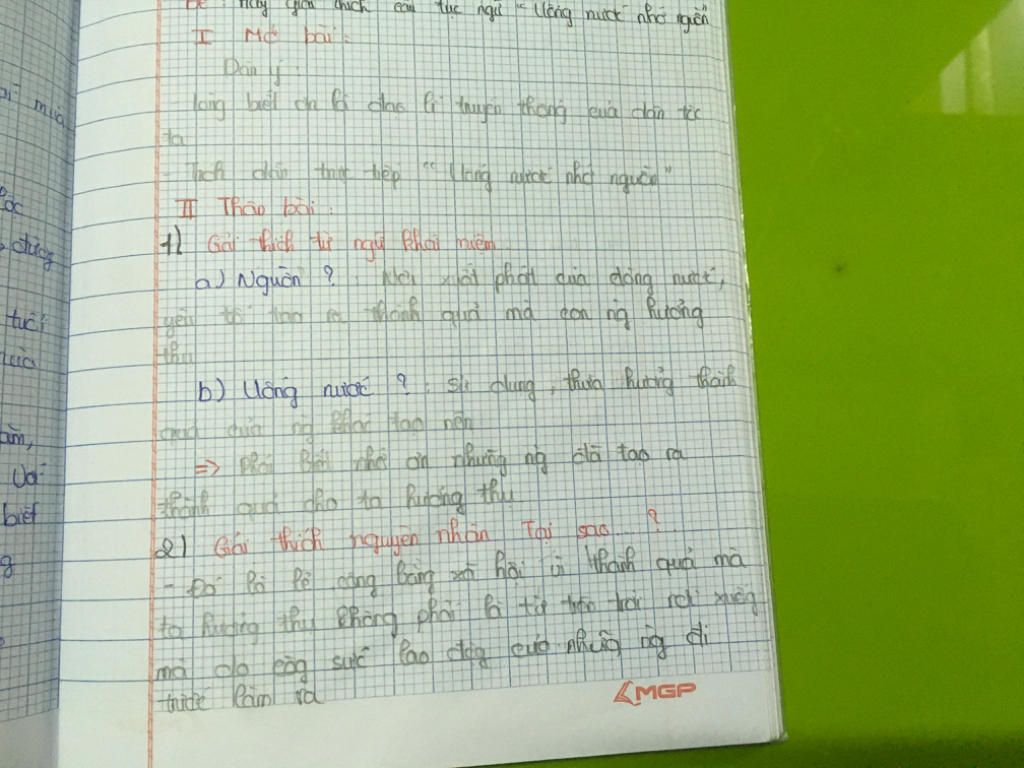 Đề: Hãy giải thích câu tục ngữ "Uống nước nhớ nguồn
I Mở bài:
Dẫn ý:
- lòng biết ơn là đạo lí truyền thống của dân tộc
ta
- Trích dẫn trực tiếp "Uống nước nhớ nguồn"
II Thân bài:
1) Giải thích từ ngữ khái niệm
a) Nguồn ?: Nơi xuất phát của dòng nước,
yếu tố tạo ra thành quả mà con ng hưởng
thụ
b) Uống nước ?: sử dụng, thừa hưởng thành
quả của ng khác tạo nên
=> phải biết nhớ ơn những ng đã tạo ra
thành quả cho ta hưởng thụ
2) Giải thích nguyên nhân Tại sao...?
- Đó là lẽ công bằng xã hội vì thành quả mà
ta hưởng thụ không phải là từ trên trời rơi xuống
mà do công sức lao động của những ng đi
trước làm ra
MGP
mùa
đựng
tuổi
Với
biết